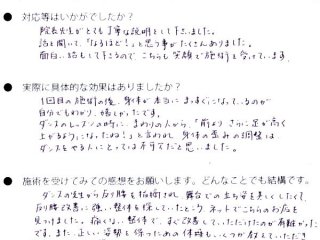 ● 対応等はいかがでしたか？
院長先生がとても丁寧な説明をして下さいました。
話を聞いて、「なるほど!」と思う事がたくさんありました。
面白い話もして下さるので、こちらも笑顔で施術を受けています。
● 実際に具体的な効果はありましたか？
1回目の施術の後、身体が本当にまっすぐになっているのが
自分でもわかり、嬉しかったです。
ダンスのレッスンの時に、まわりの人から、「前より さっと足が高く
上がるようになったね!」と言われ、身体の歪みの調整は
ダンスをやる人にとっては不可欠だと思いました。
● 施術を受けてみての感想をお願いします。どんなことでも結構です。
ダンスの先生から反り腰を指摘され、舞台での立ち姿を美しくしたくて、
反り腰改善に強い整体を探していたところ、ネットでこちらのお店を
見つけました。痛くない整体で、すぐ改善していただけたのが有難かった
です。また、正しい姿勢を保つための体操もいくつか教えていただき